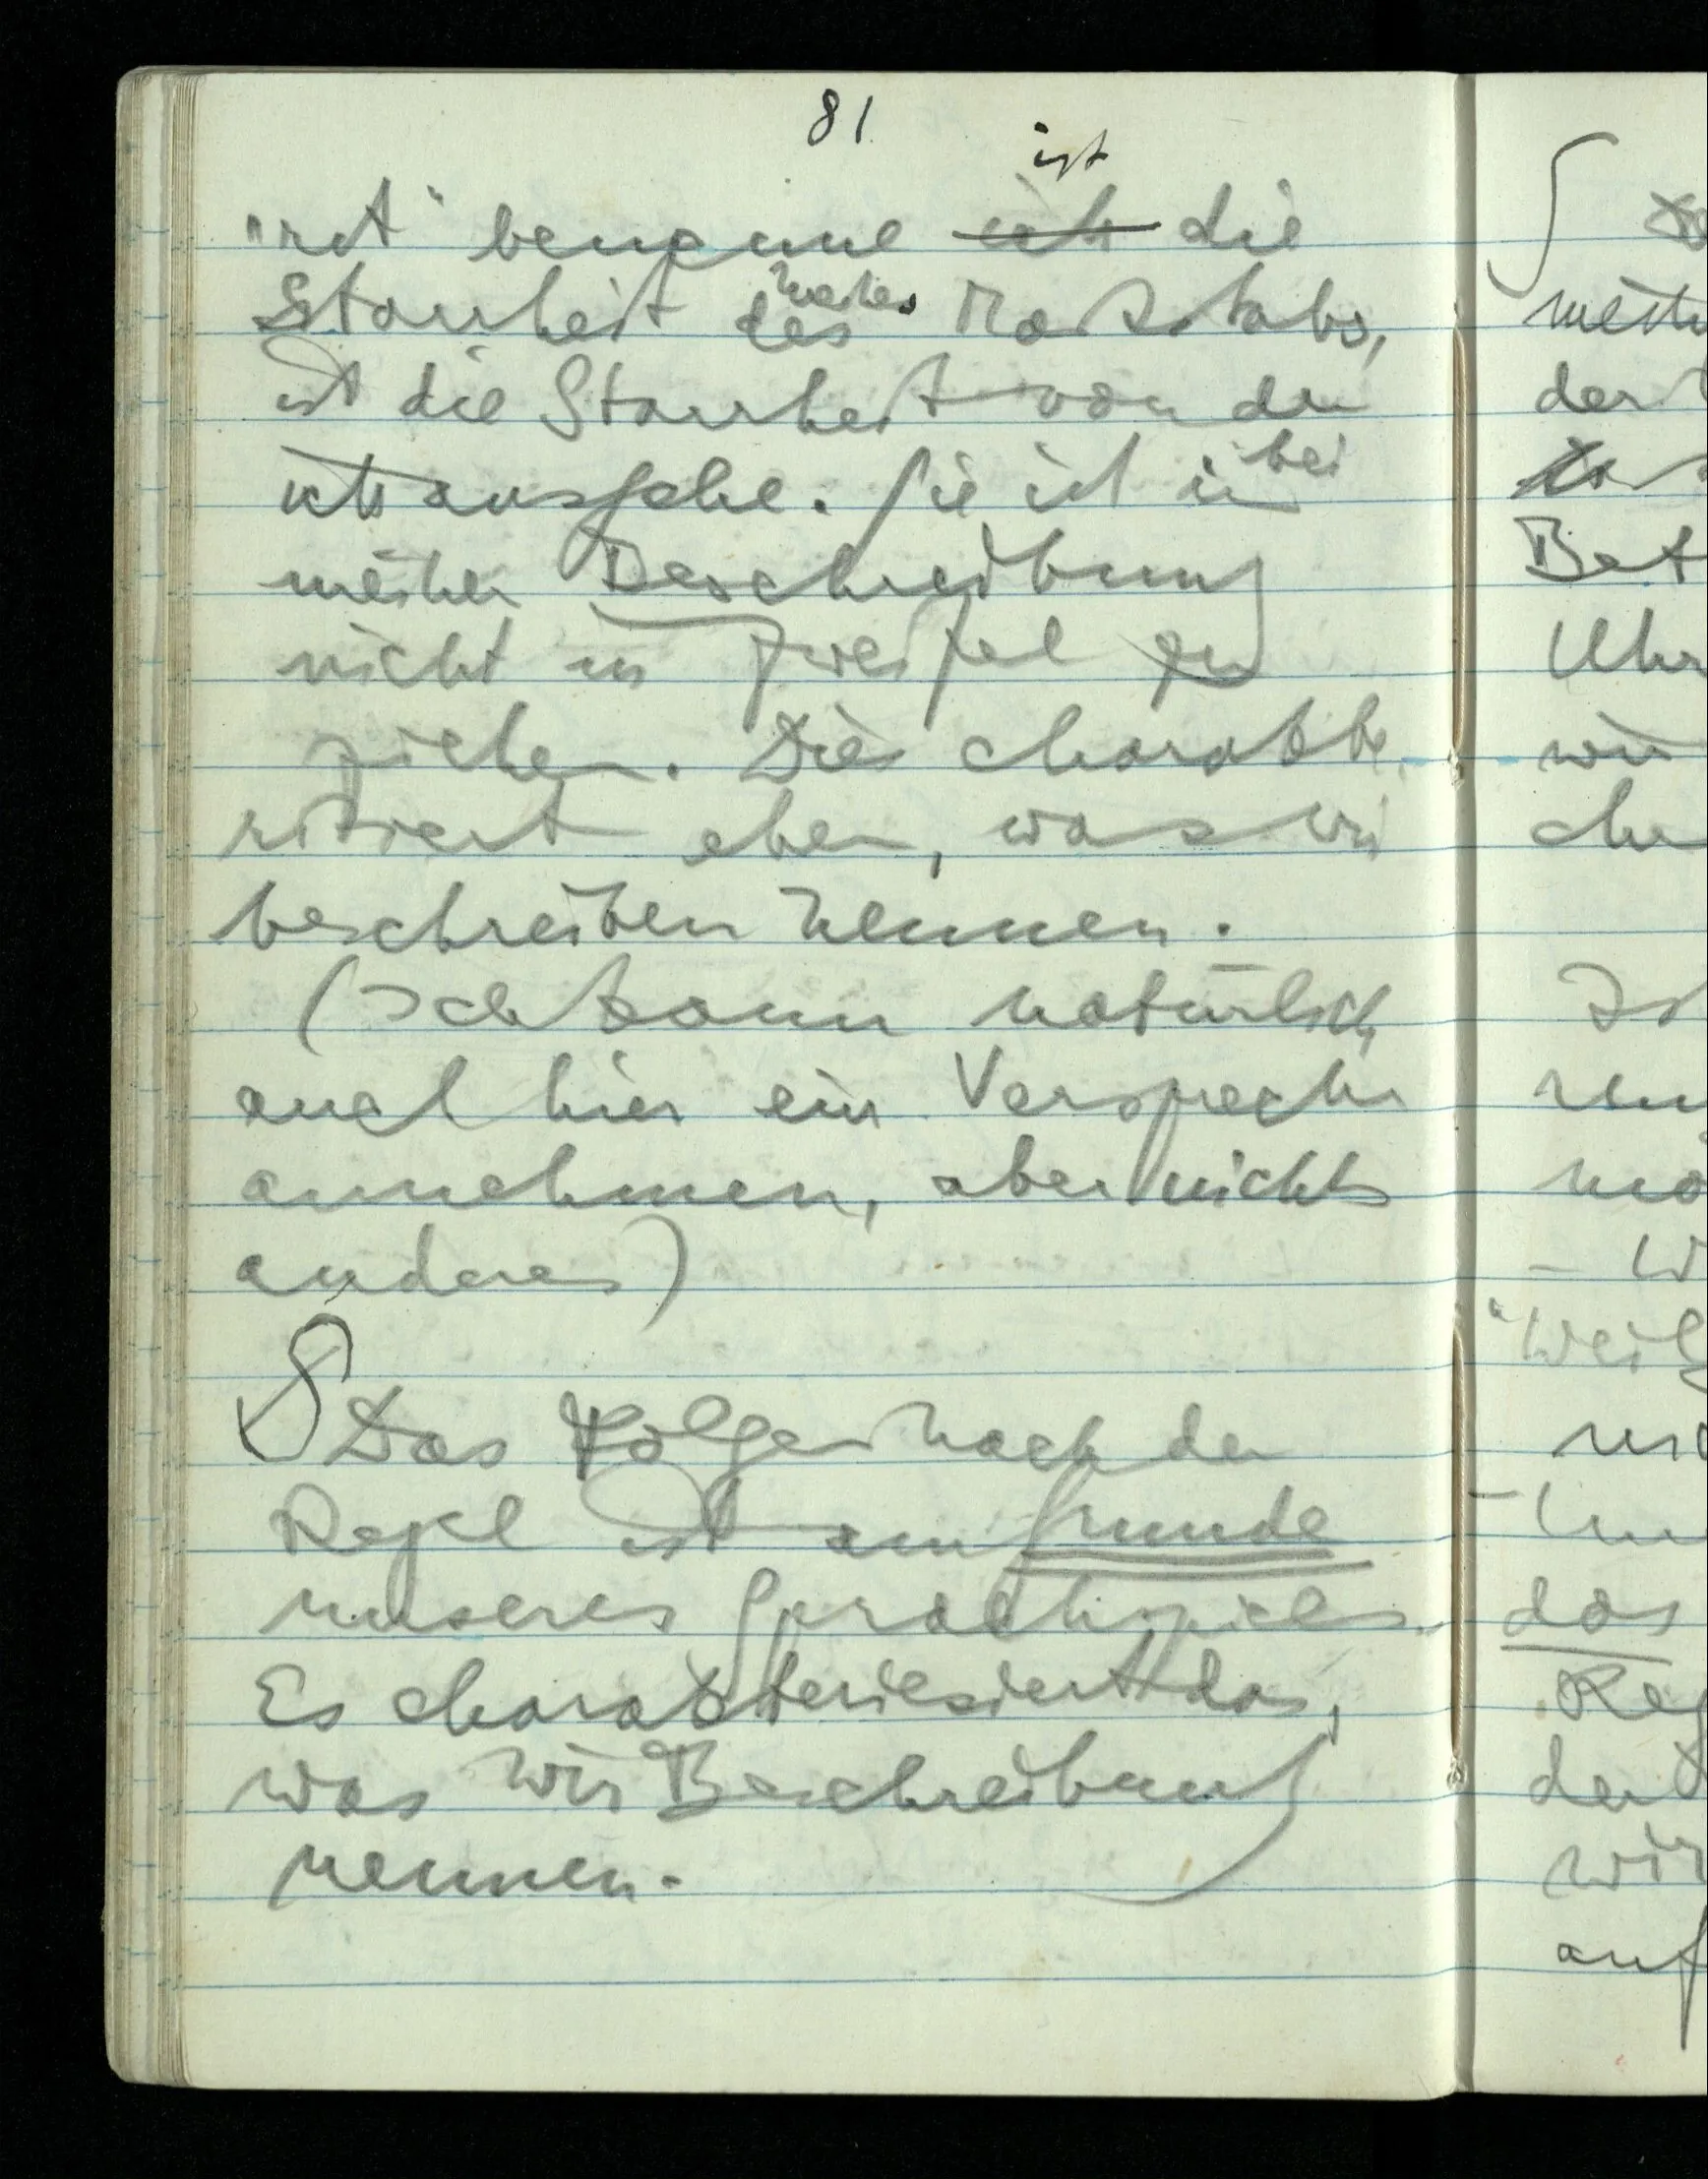 81
ist
"rot" benenne ich die
meines
Starrheit des Maßstabs,
ist die Starrheit von der
bei
ich ausgehe. Sie ist in
meiner Beschreibung
nicht in Zweifel zu
ziehen. Dies charakte
risiert eben, was wir
beschreiben nennen.
(Ich kann natürlich
auch hier ein Versprechen
annehmen, aber nichts
anderes)
Das Folgen nach der
Regel ist am Grunde
unseres Sprachspiels.
Es charakteriesiert das,
was wir Beschreibung
nennen.
der
Bet
Uhr
wir
che
"Weil
das
Reg
der
wir
auf